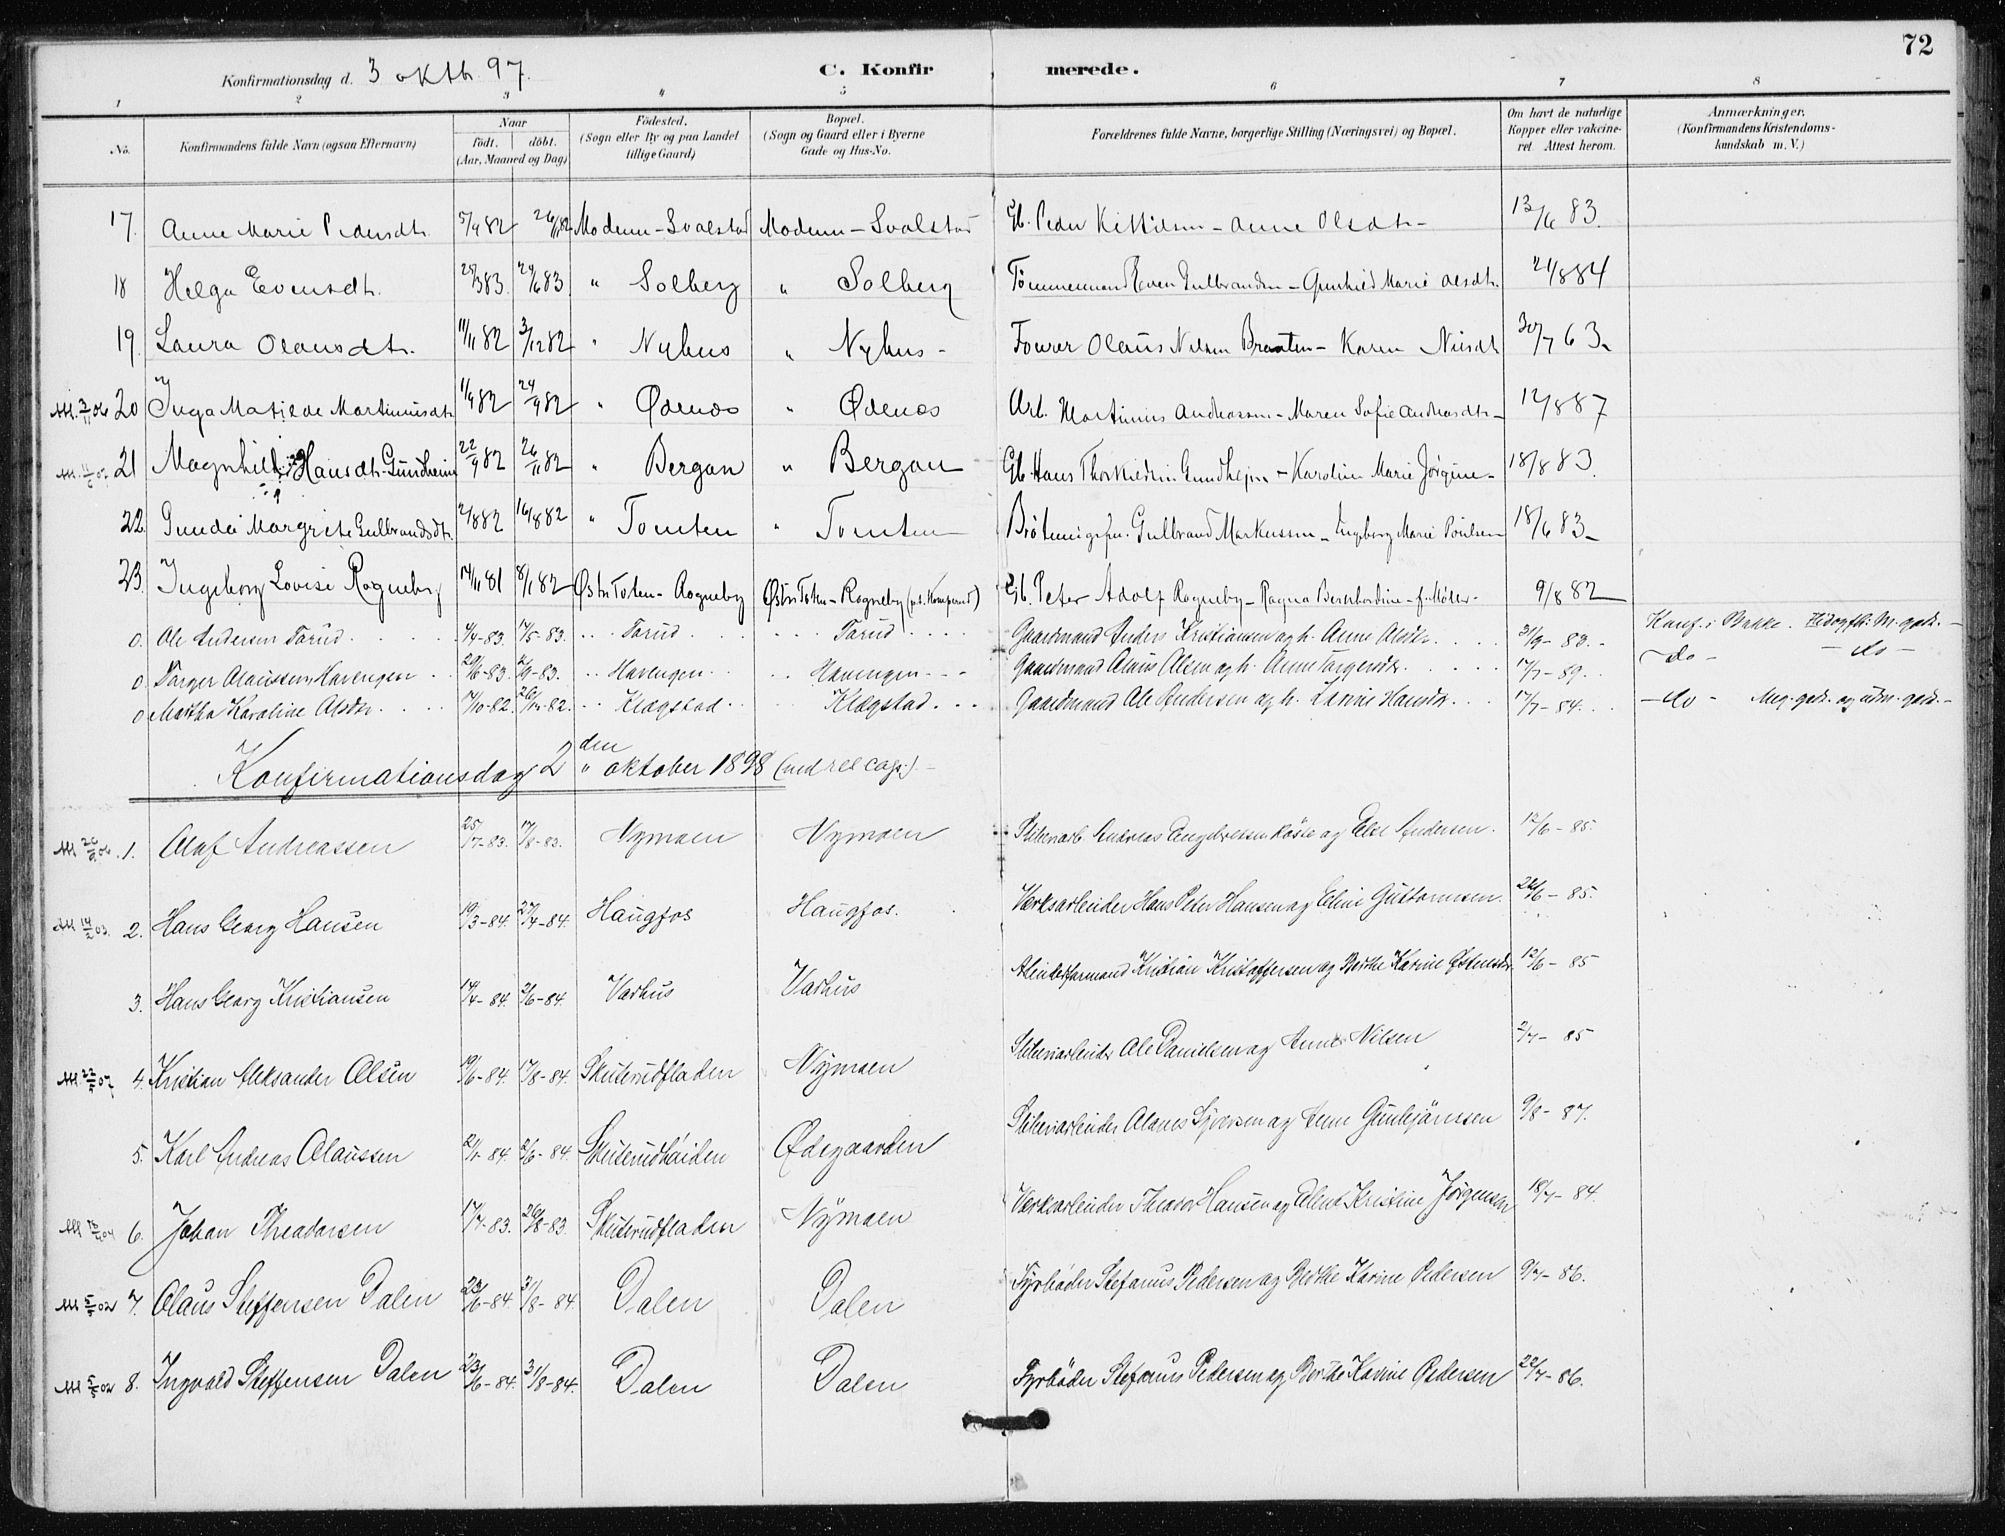 72
Konfirmationsdag d. 3 oktb. 97. C. Konfirmerede.
1 2 3 4 5 6 7 8
No. Konfirmandens fulde Navn (ogsaa Efternavn) Naar födt. döbt. (Aar, Maaned og Dag) Födested. (Sogn eller By og paa Landet tillige Gaard) Bopæl. (Sogn og Gaard eller i Byerne Gade og Hus-No. Forældrenes fulde Navne, borgerlige Stilling (Næringsvei) og Bopæl. Om havt de naturlige Kopper eller vakcineret. Attest herom. Anmærkninger. (Konfirmandens Kristendomskundskab m. V.)
17. Anne Marie Pedersdtr. 5/9 82 26/11 82 Modum - Svalstad Modum - Svalstad Gb. Peder Kittilsen - Anne Olsdtr - 13/6 83.
18 Helga Evensdt. 25/3 83. 24/6 83 " Solberg " Solberg Tømmermand Even Gulbrandsen - Gunhild Marie Olsdtr. 21/8 84
19. Laura Olausdtr. 11/11 82 3/12 82 " Nyhus " Nyhus - Olaus Nilsen Braaten - Karen Nilsdt 30/7 63.
20 Inga Matilde Martinusdt. 11/9 82 24/9 82 " Ødenæs " Ødenæs Arb. Martinius Andreassen - Maren Sofie Andreasdtr - 12/8 87
21 Magnhild Hansdt. Gundheim 22/9 82 26/11 82 " Bergan " Bergan Gb. Hans Thorkildsen Gundhejm - Karoline Marie Jørgine - 18/8 83.
22. Gunda Margrete Gulbrandsdt. 2/8 82 16/8 82 " Tomten " Tomten Gulbrand Markussen - Ingeborg Marie Poulsen 18/6 83 -
23. Ingeborg Lovise Rogneby 14/11 81 8/1 82 Østre Toten - Rogneby Østre Toten - Rogneby Gb. Peter Adolf Rogneby - Ragna Bernhardine - f. Møller - 9/8 82
0. Ole Andersen Torud 4/4-83. 17/5-83. Torud Torud Gaardmand Anders Kristiansen og h. Anne Olsdtr. 31/9-83. - Konf. i Bakke.
0. Torger Olaussen Havengen 29/6-83. 2/9-83. Havengen Havengen Gaardmand Olaus Olsen og h. Anne Torgersdtr. 17/7-89. - do - - do -
0 Martha Karoline Olsdtr. 17/10-82. 26/12-82. Klægstad Klægstad Gaardmand Ole Andersen og h. Lavine Hansdtr. 17/7-84. - do - Meg. godt. og udm. godt. -
Konfirmationsdag 2den oktober 1898 (ved res. cap.) -
1. Olaf Andreassen 25/7-83. 17/8-83. Nymoen Nymoen Andreas Engebretsen og Else Andersen. 12/6-85.
2. Hans Georg Hansen 19/3-84. 27/4-84. Haugfos Haugfos. Værksarbeider Hans Peter Hansen og Eline Guttormsen. 24/6-85.
3. Hans Georg Kristiansen 14/4-84. 2/6-84. Varhus Varhus Arbeidsformand Kristian Kristoffersen og Berthe Karine 12/6-85
4. Kristian Aleksander Olsen 19/6-84. 17/8-84. Skuterudfladen Nymoen Sliberiarbeider Ole Danielsen og Anne Nilsen 2/7-85
5. Karl Andreas Olaussen 21/1-84. 2/6-84. Skuterudheiden Ødegaarden Sliberiarbeider Olaves Syversen og Anne Gunbjørnssen 9/8-87.
6. Johan Theodorsen 17/7-83. 26/8-83. Skuterudfladen Nymoen Værksarbeider Theodor Hansen og Kristine Jørgensen 18/7-84.
5/5 02 7. Olaus Steffensen Dalen 23/6-84. 31/8-84. Dalen Dalen Fyrbøder Stefanus Pedersen og Berthe Karine Pedersen 9/7-86.
5/5 02 8. Ingvald Steffensen Dalen 23/6-84. 31/8-84. Dalen Dalen Fyrbøder Stefanus Pedersen og Berthe Karine Pedersen 22/7-86.